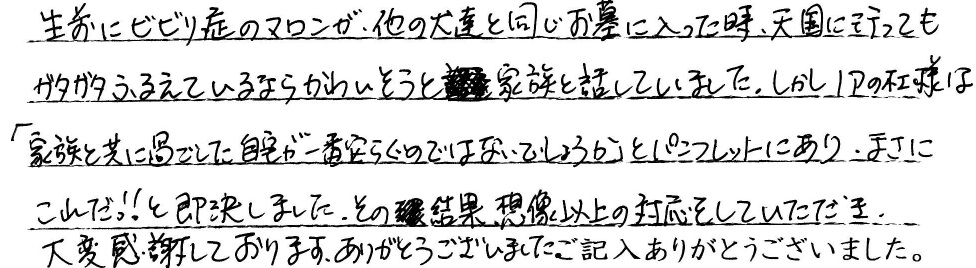 生前にビビリ症のマロンが、他の犬達と同じお墓に入った時、天国に行っても
ガタガタふるえているならかわいそうと家族と話していました。しかしJPの杜様は
「家族と共に過ごした自宅が一番安らぐのではないでしょうか」とパンフレットにあり、まさに
これだ!!と即決しました。その結果、想像以上の対応をしていただき、
大変感謝しております。ありがとうございました。ご記入ありがとうございました。